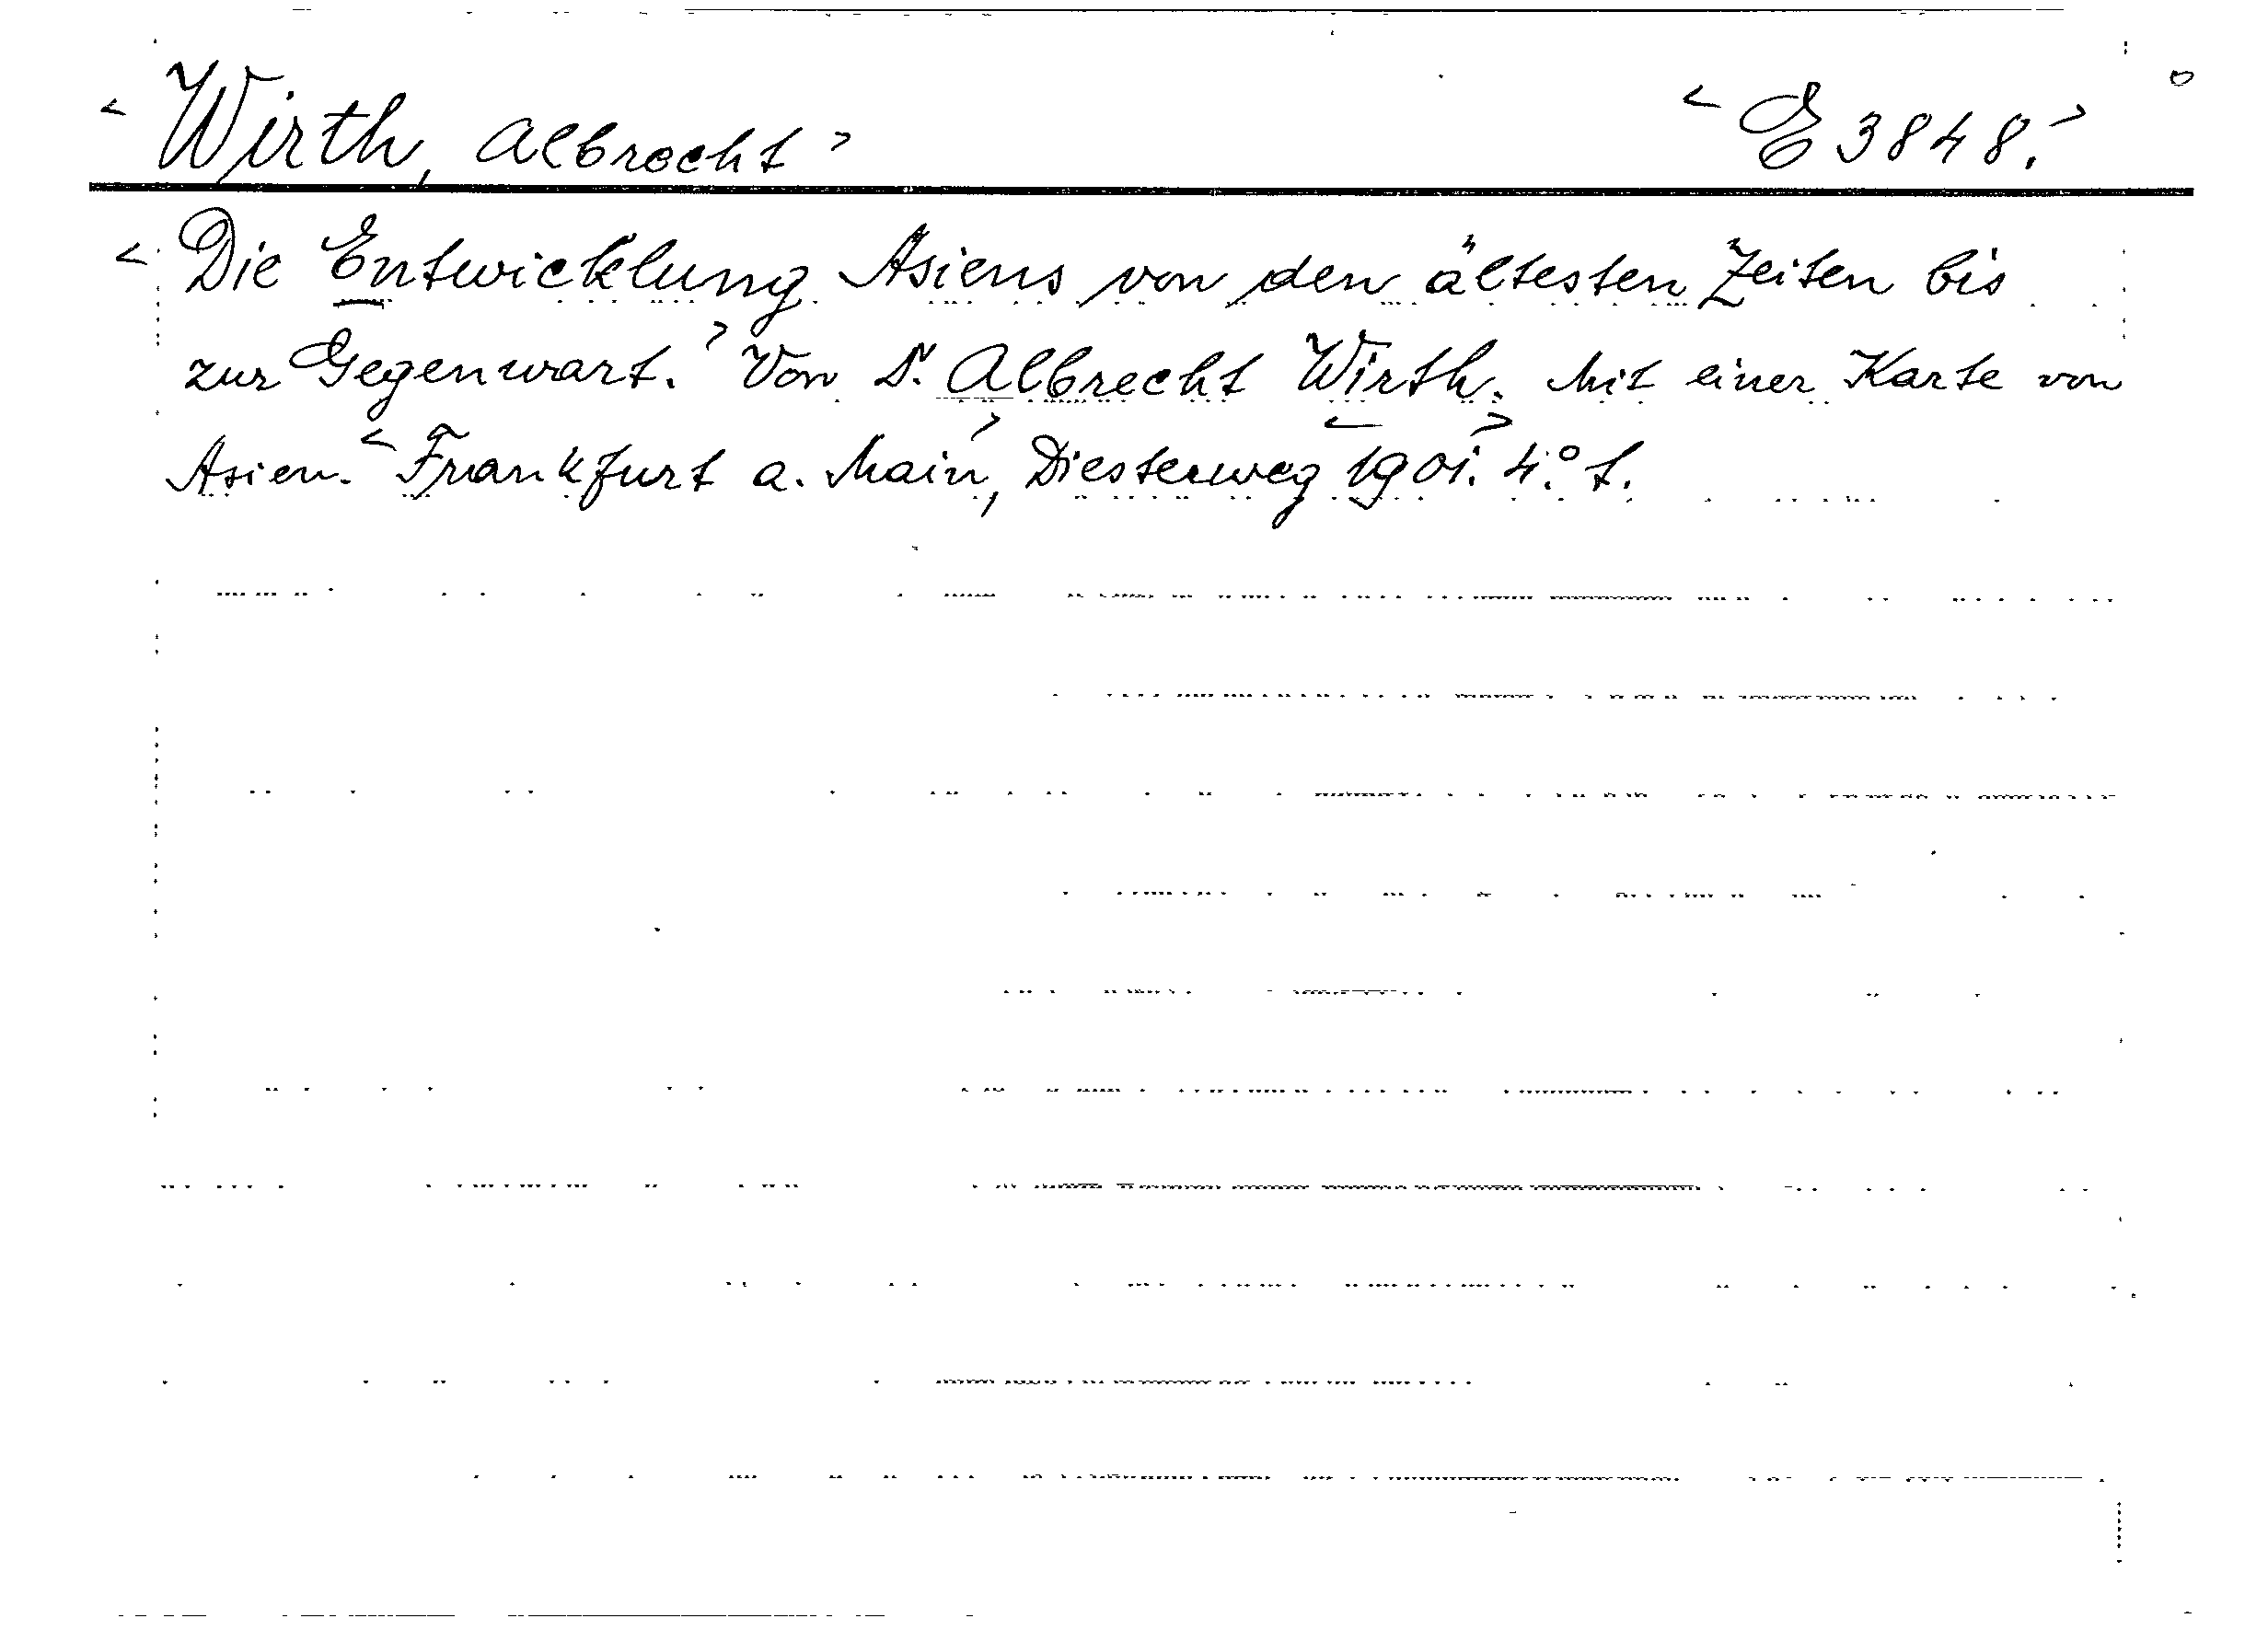 < Wirth, Albrecht > < E 3848. >
< Die Entwicklung Asiens von den ältesten Zeiten bis
zur Gegenwart. > Von Dr. Albrecht Wirth. Mit einer Karte von
Asien. < Frankfurt a. Main >, Diesterweg < 1901. > 4.° f.